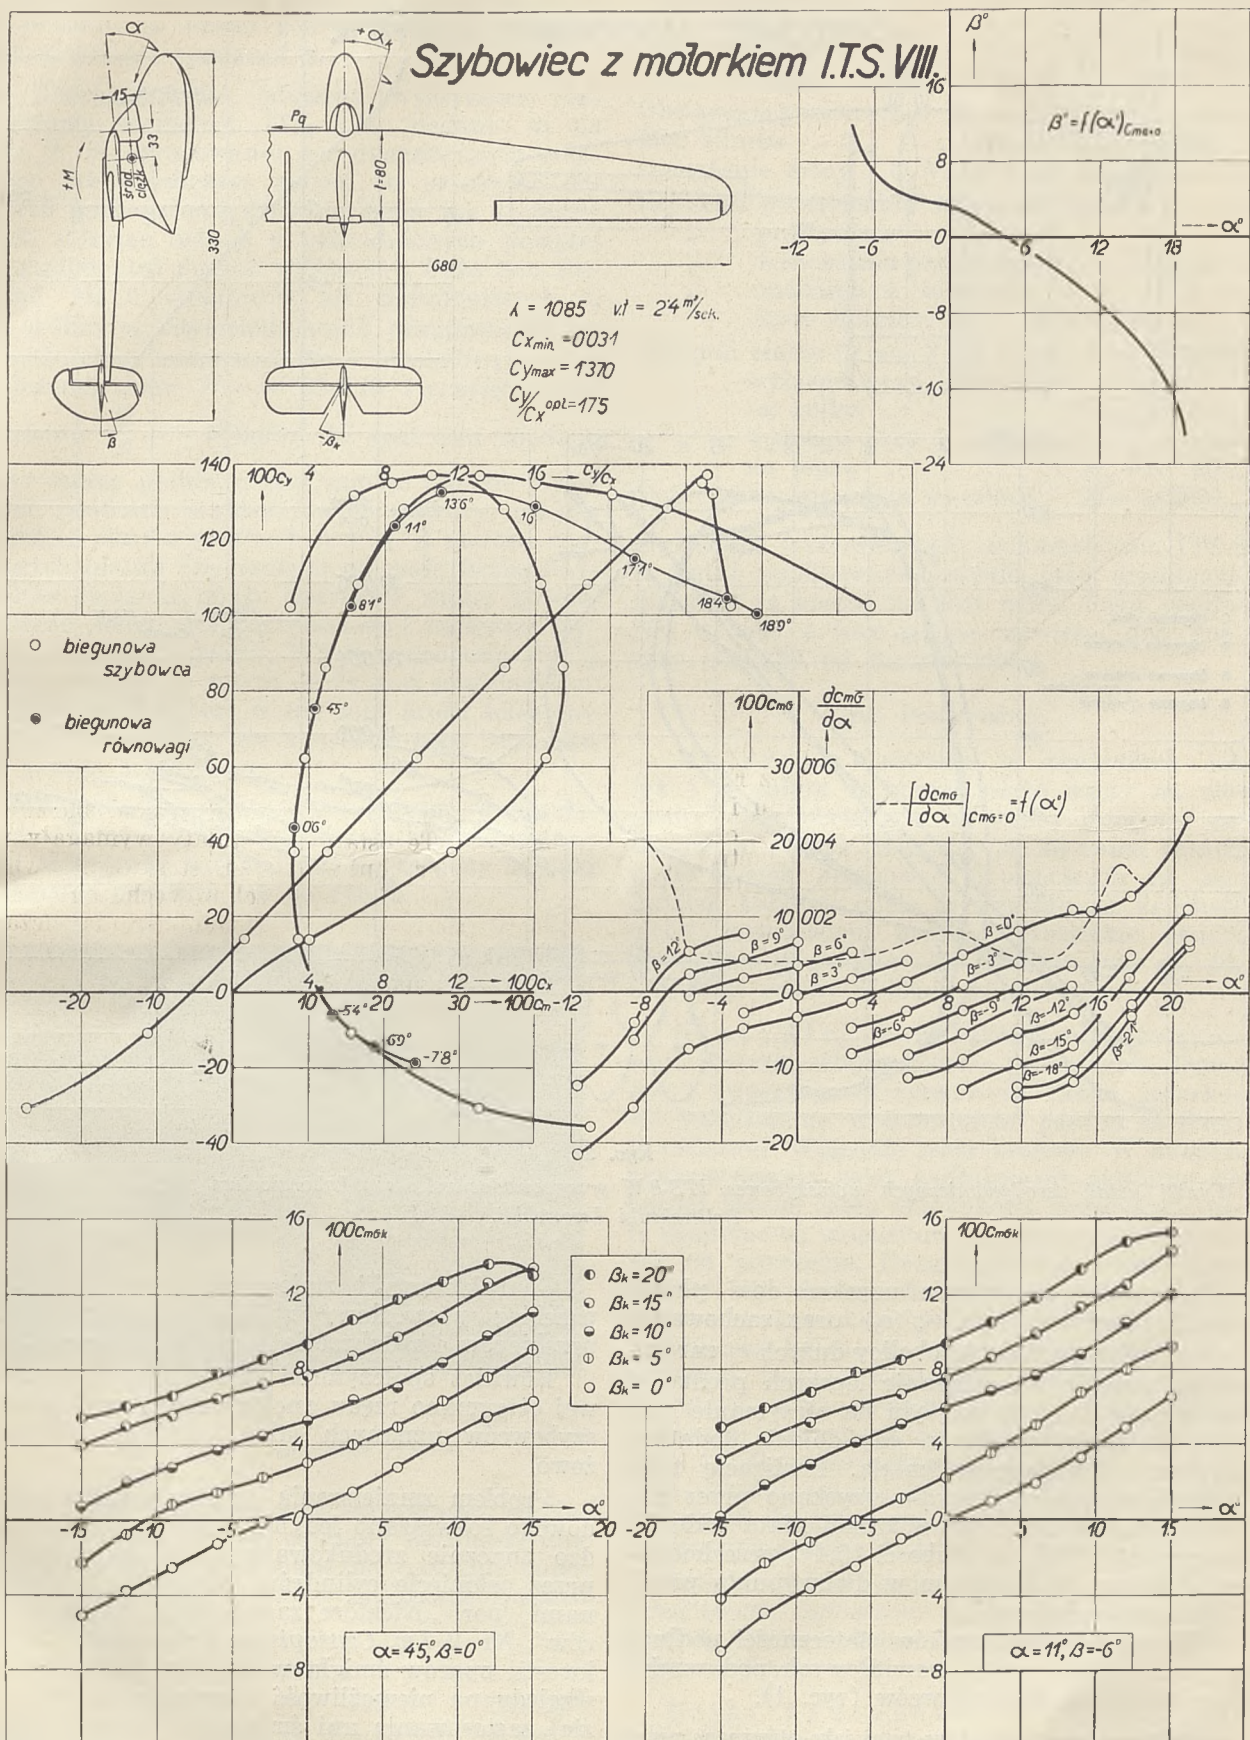 Szybowiec z motorkiem I.T.S. VIII.
α
15
33
+M
środ.
ciężk
330
β
+αk
Pq
l=80
680
-βk
λ = 10'85 v.l = 24 m²/sek.
Cx min = 0'031
Cy max = 1'370
Cy/Cx opt = 17'5
β°
16
8
0
-8
-16
-24
-12 -6 6 12 18
α°
β°=f(α°)Cmɢ=0
140
120
100
80
60
40
20
0
-20
-40
100Cy 4 8 12 16 Cy/Cx
13'6°
11°
16°
17'1°
18'4°
18'9°
8'1°
4'5°
0'6°
-5'4°
-6'9°
-7'8°
biegunowa
szybowca
biegunowa
równowagi
4 8 12 100Cx
-20 -10 10 20 30 100Cm
100Cmɢ dCmɢ/dα
30 0'06
20 0'04
10 0'02
-10
-20
[dCmɢ/dα]Cmɢ=0 = f(α°)
-12 -8 -4 4 8 12 16 20
α°
β=12°
β=9°
β=6°
β=3°
β=0°
β=-3°
β=-6°
β=-9°
β=-12°
β=-15°
β=-18°
β=-21°
100Cmɢk
16
12
8
4
0
-4
-8
-15 -10 -5 5 10 15 20
α°
α=4'5°, β=0°
βk = 20°
βk = 15°
βk = 10°
βk = 5°
βk = 0°
100Cmɢk
16
12
8
4
0
-4
-8
-20 -15 -10 -5 5 10 15
α°
α=11°, β=-6°